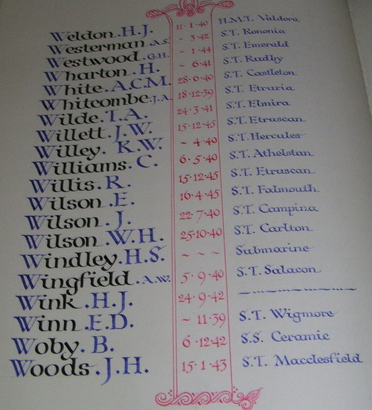 Weldon. H.J. 11·1·40 H.M.T. Valdora
Westerman A.S. ~ 3·42 S.T. Rononia
Westwood. G.H. ~ 1·44 S.T. Emerald
Wharton. H. ~ 6·41 S.T. Rudby
White. A.C.M. 28·6·40 S.T. Castleton
Whitcombe. J.A. 18·12·39 S.T. Etruria
Wilde. T.A. 24·3·41 S.T. Elmira
Willett. J.W. 15·12·45 S.T. Etruscan
Willey. K.W. ~ 4·40 S.T. Hercules
Williams. C. 6·5·40 S.T. Athelstan
Willis. R. 15·12·45 S.T. Etruscan
Wilson. E. 16·4·45 S.T. Falmouth
Wilson. J. 22·7·40 S.T. Campina
Wilson. W.H. 25·10·40 S.T. Carlton
Windley. H.S. ~ ~ ~ Submarine
Wingfield. A.W. 5·9·40 S.T. Salacon
Wink. H.J. 24·9·42
Winn. E.D. ~ 11·39 S.T. Wigmore
Woby. B. 6·12·42 S.S. Ceramic
Woods. J.H. 15·1·43 S.T. Macclesfield